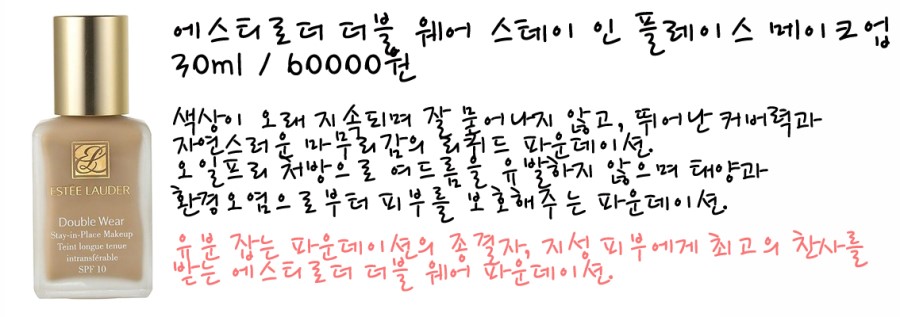 에스티로더 더블 웨어 스테이 인 플레이스 메이크업
30ml / 60000원
색상이 오래 지속되며 잘 묻어나지 않고, 뛰어난 커버력과
자연스러운 마무리감의 리퀴드 파운데이션.
오일프리 처방으로 여드름을 유발하지 않으며 태양과
환경오염으로부터 피부를 보호해주는 파운데이션.
유분 잡는 파운데이션의 종결자, 지성 피부에게 최고의 찬사를
받는 에스티로더 더블 웨어 파운데이션.
ESTĒE LAUDER
Double Wear
Stay-in-Place Makeup
Teint longue tenue
intransférable
SPF 10